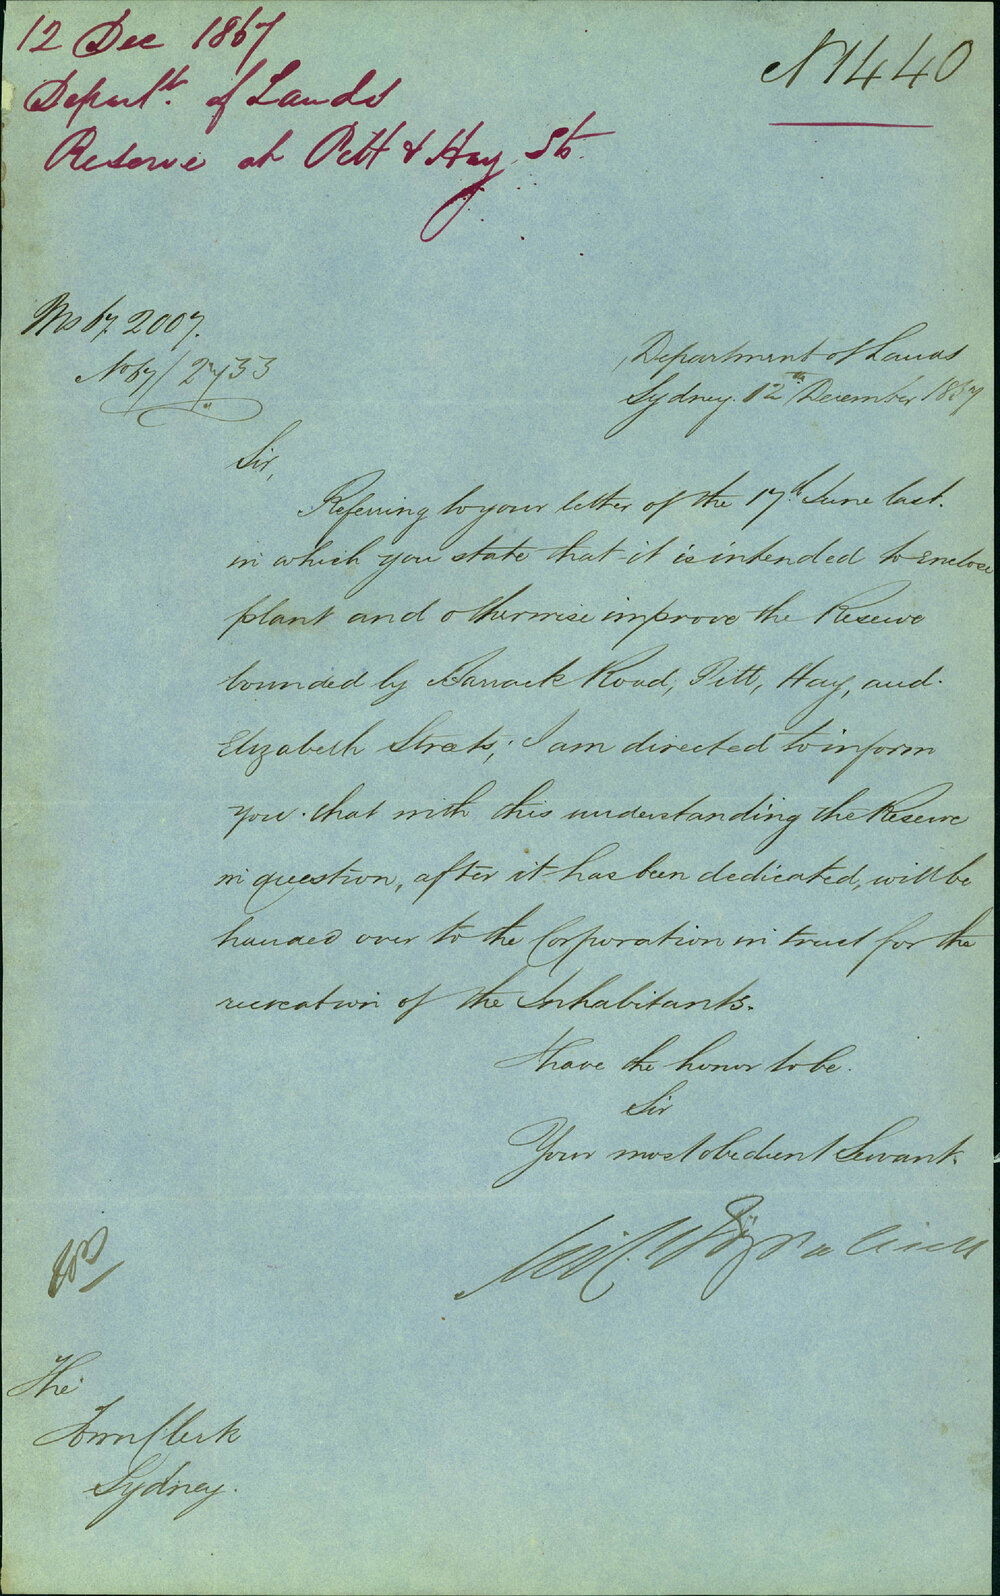 12 Dec 1867
Departt. of Lands
Reserve at Pitt & Hay Sts.
No 1440
Ms 67. 2007.
No 67/2733
Department of Lands
Sydney. 12th December 1867
Sir,
Referring to your letter of the 17th. June last.
in which you state that it is intended to enclose
plant and otherwise improve the Reserve
bounded by Barrack Road, Pitt, Hay, and
Elizabeth Streets; I am directed to inform
you that with this understanding the Reserve
in question, after it has been dedicated, will be
handed over to the Corporation in trust for the
recreation of the Inhabitants.
I have the honor to be.
Sir
Your most obedient Servant.
The
Town Clerk
Sydney.